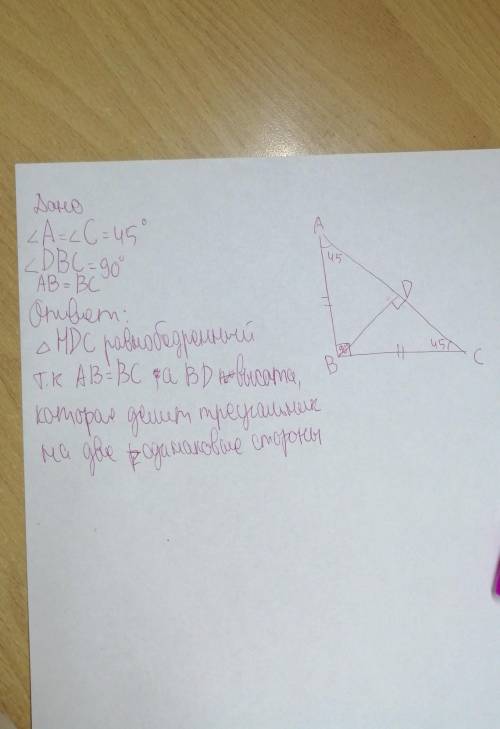 Дано
∠A=∠C=45°
∠DBC=90°
AB=BC
Ответ:
△ MDC равнобедренный
т.к AB=BC а BD высата,
которая делит треугольник
на две одинаковые стороны
A
45
D
B
90
45
C